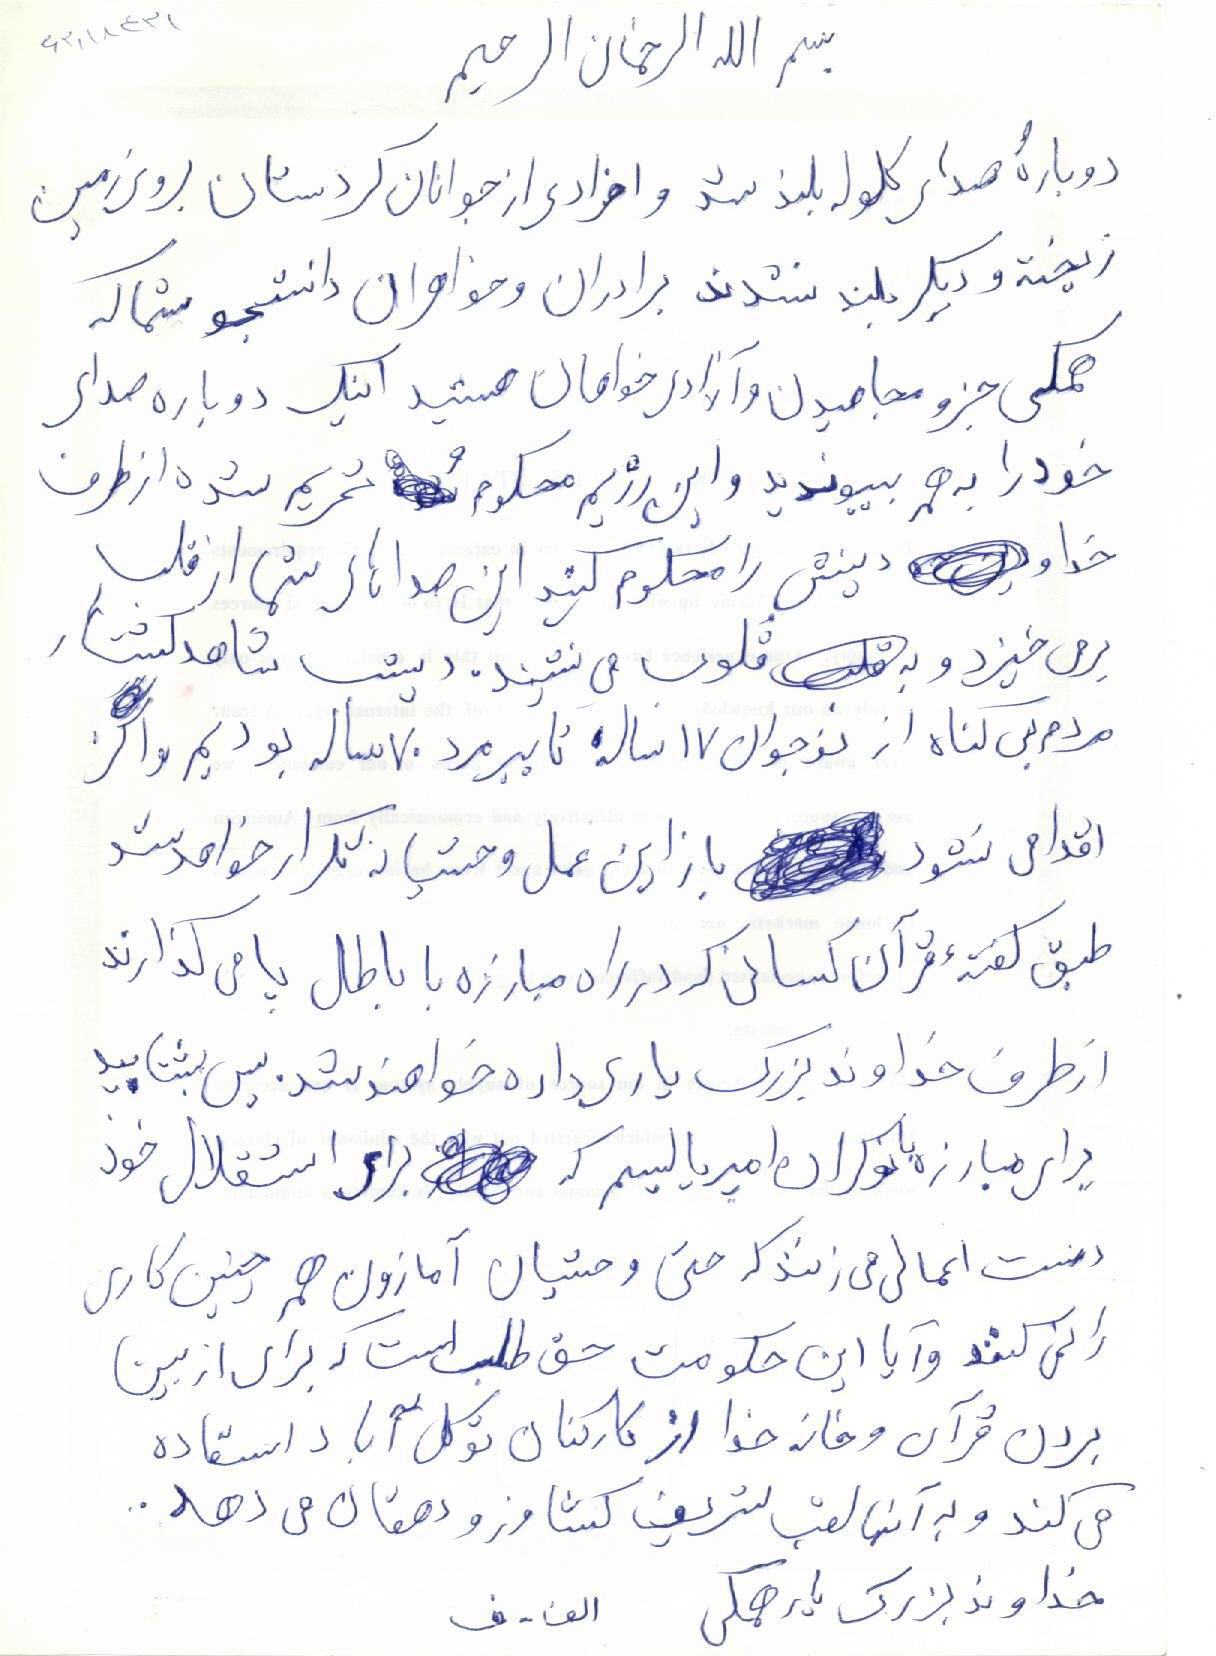 بسم الله الرحمان الرحیم
دوبارهٔ صدای کلوله بلند شد و افرادی از جوانان کردستان بروی زمین
ریخته و دیکر بلند نشدند برادران و خواهران دانشجو شما که
همکی جزو مجاهدین و آزادی خواهان هستید اینک دوباره صدای
خود را به هم بپیوندید و این رژیم محکوم تحریم شده از طرف
خدا و دینش را محکوم کنید این صداهای شما از قلب
برمی خیزد و به قلوب می نشیند. دیشب شاهد کشتار
مردم بی کناه از نوجوان ۱۷ ساله تا پیرمرد ۷۰ ساله بودیم و اکر
اقدامی نشود باز این عمل وحشیانه تکرار خواهد شد
طبق کفتهٔ قرآن کسانی که در راه مبارزه با باطل پا می کذارند
از طرف خداوند بزرک یاری داده خواهند شد. پس بشتابید
برای مبارزه با نوکران امپریالیسم که برای استقلال خود
دست اعمالی می زنند که حتی وحشیان آمازون هم چنین کاری
را نمی کنند و آیا این حکومت حق طلب است که برای از بین
بردن قرآن و خانه خدا از کارکنان توکل آباد استفاده
می کند و به آنها لقب شریف کشاورز و دهقان می دهد..
خداوند بزرک یار همکی الف-ف